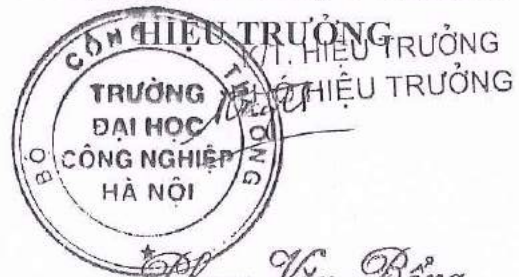 HIỆU TRƯỞNG
K/T. HIỆU TRƯỞNG
PHÓ HIỆU TRƯỞNG
BỘ CÔNG THƯƠNG
TRƯỜNG
ĐẠI HỌC
CÔNG NGHIỆP
HÀ NỘI
Văn Bổng